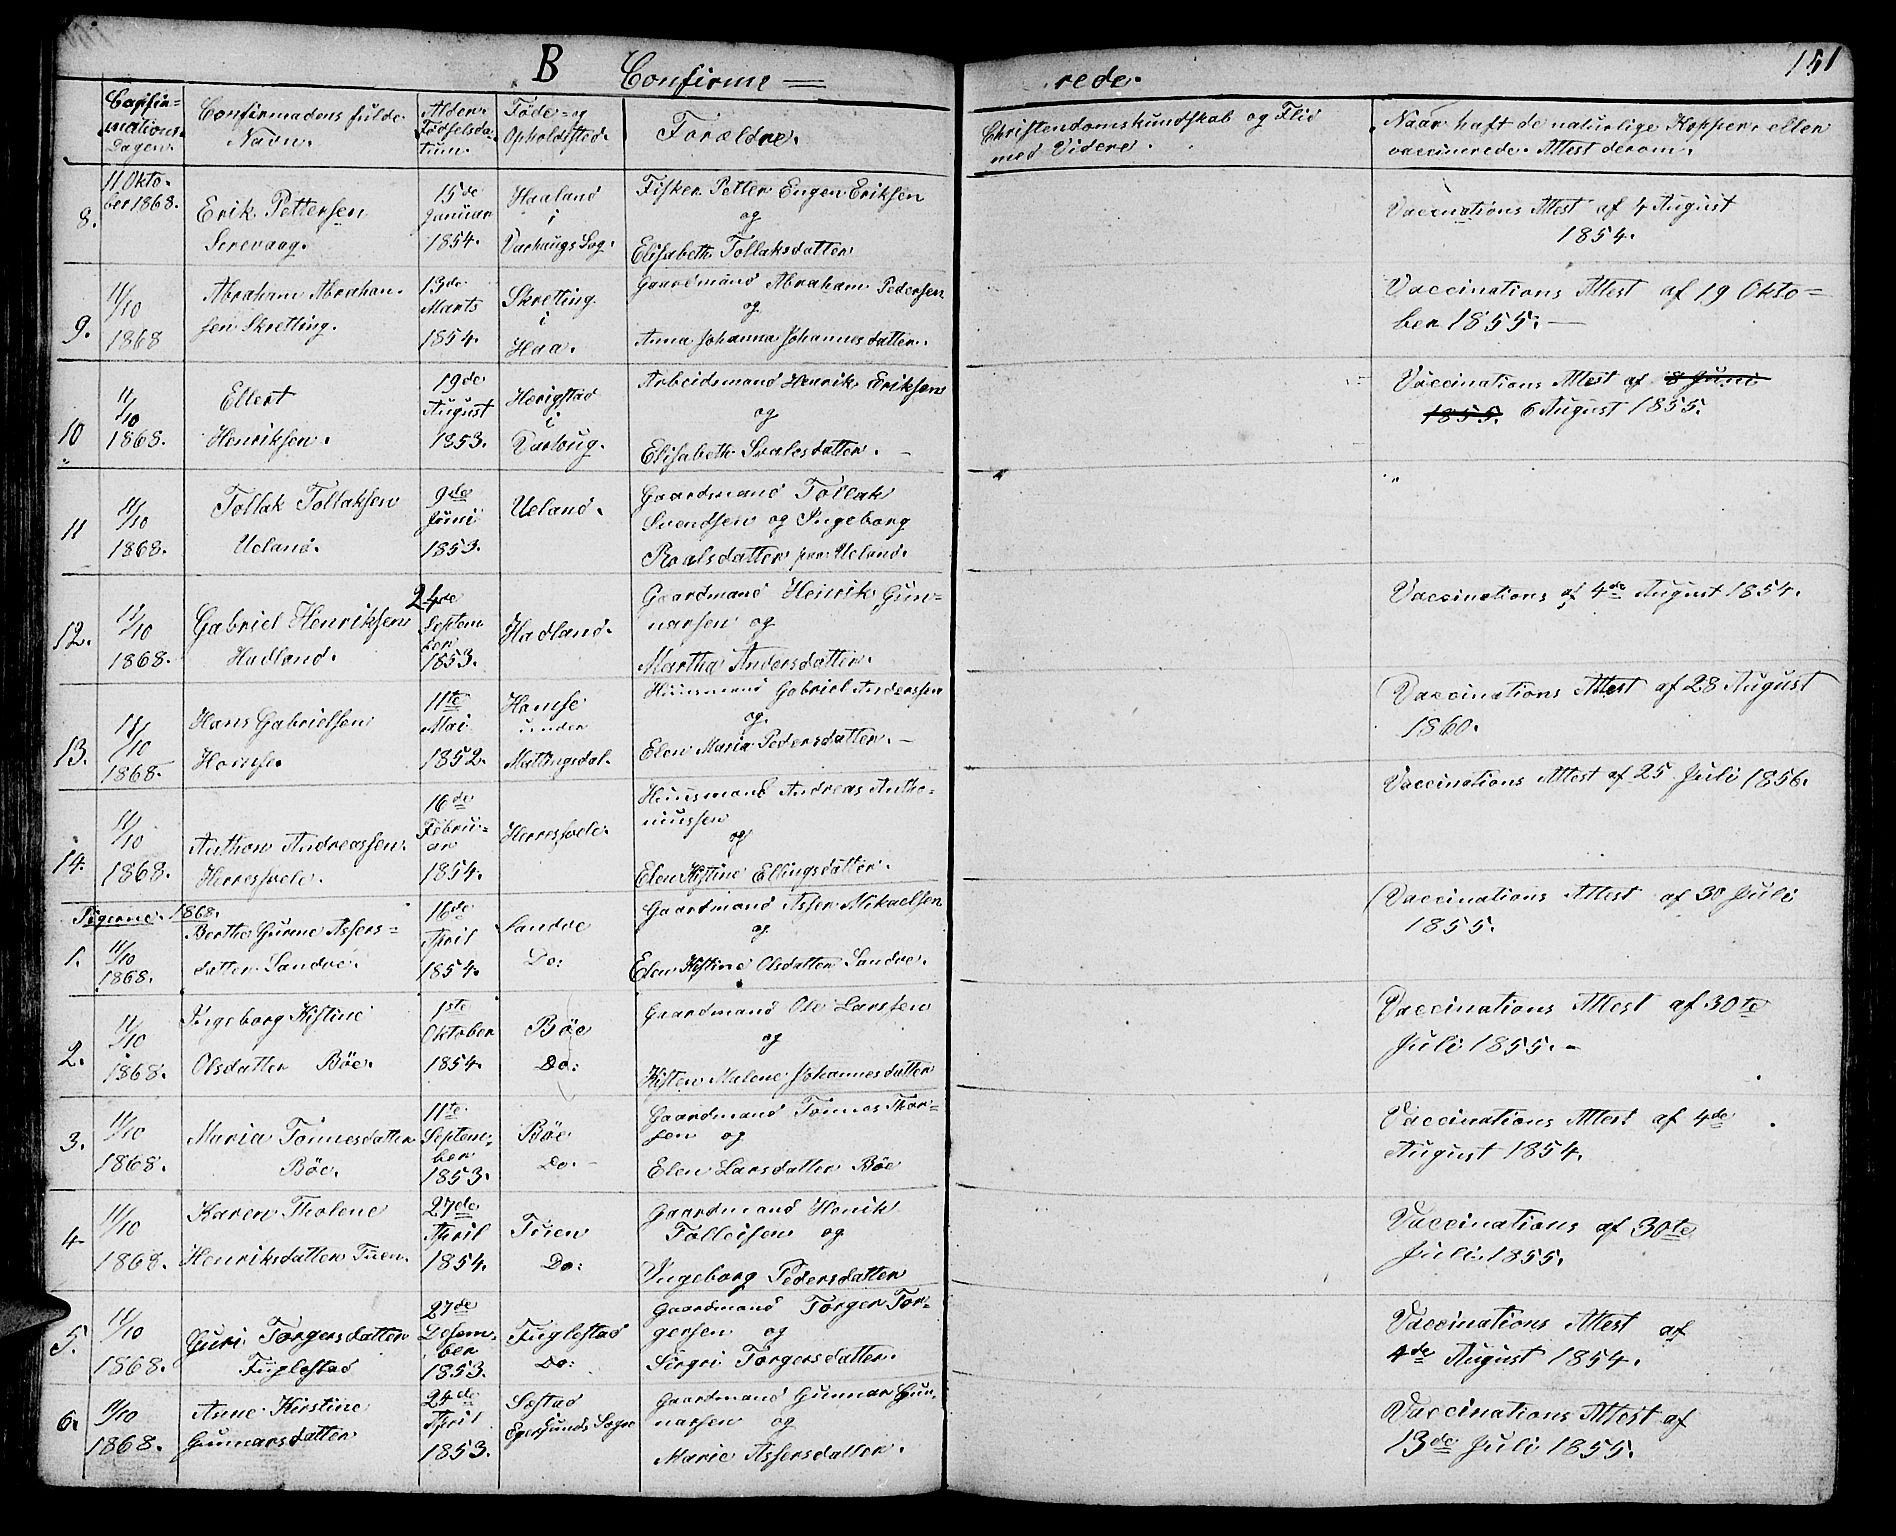 B Confirme= rede. 151
Confir=
mations
Dagen.
Confirmadens fulde
Navn.
Alder.
Fødselsda-
tum.
Føde- og
Opholdssted.
Forældre.
Christendomskundskab og Flid
med Videre.
Naar haft de naturlige Kopper eller
vaccinerede. Attest derom.
8.
11 Okto-
ber 1868.
Erik Pettersen
Sirevaag.
15de
Januar
1854.
Haaland
i
Varhaugs Sog.
Fisker Petter Eugen Eriksen
og
Elisabeth Tollaksdatter
Vaccinations Attest af 4 August
1854.
9.
11/10
1868
Abraham Abraham-
sen Skretting.
13de
Marts
1854.
Skretting
i
Haa.
Gaardmand Abraham Pedersen
og
Anna Johanna Johannesdatter.
Vaccinations Attest af 19 Okto=
ber 1855.—
10
11/10
1868.
Ellert
Henriksen.
19de
August
1853.
Hærigstad
i
Varhoug.
Arbeidsmand Henrik Eriksen
og
Elisabeth Svalesdatter.
Vaccinations Attest af 8 Juni
1855. 6 August 1855.
11
11/10
1868.
Tollak Tollaksen
Ueland.
9de
Juni
1853.
Ueland.
Gaardmand Tollak
Svendsen og Ingeborg
Roalsdatter paa Ueland.
"
12.
11/10
1868.
Gabriel Henriksen
Hadland.
24de
Septem
ber
1853.
Hadland.
Gaardmand Henrik Gun=
narsen og
Martha Andersdatter.
Vaccinations af 4de August 1854.
13.
11/10
1868.
Hans Gabrielsen
Homse.
11te
Mai
1852.
Homse
under
Mattingsdal.
Huusmand Gabriel Anderssen
og
Elen Maria Pedersdatter.—
Vaccinations Attest af 28 August
1860.
14.
11/10
1868.
Anthon Andreassen
Herresvele.
16de
Febru=
ar
1854.
Herresvele.
Huusmand Andreas Antho-
niussen
og
Elen Kistine Ellingsdatter.
Vaccinations Attest af 25 Juli 1856.
Pigerne. 1868.
1.
11/10
1868.
Berthe Gurine Assers=
datter Sandve.
16de
April
1854.
Sandve
Do:
Gaardmand Asser Mikaelsen
og
Elen Kistine Olsdatter Sandve.
Vaccinations Attest af 30 Juli
1855.
2.
11/10
1868.
Ingeborg Kistine
Olsdatter Böe.
1ste
Oktober
1854.
Böe
Do:
Gaardmand Ole Larssen
og
Kisten Malene Johannesdatter
Vaccinations Attest af 30te
Juli 1855.-
3.
11/10
1868.
Maria Tönnesdatter
Böe.
11te
Septem-
ber
1853.
Böe
Do.-
Gaardmand Tönnes Thor=
sen og
Elen Larsdatter Böe
Vaccinations Attest af 4de
August 1854.
4.
11/10
1868.
Karen Tholene
Henriksdatter Tuen.
27de
April
1854.
Tuen
Do:
Gaardmand Henrik
Tolleisen og
Ingeborg Pedersdatter
Vaccinations af 30te
Juli 1855.
5.
11/10
1868.
Guri Torgersdatter
Fuglestad
27de
Desem-
ber
1853.
Fuglestad
Do:
Gaardmand Torger Tor-
gersen og
Sirgri Torgersdatter.
Vaccinations Attest af
4de August 1854.
6.
11/10
1868.
Anne Kirstine
Gunnarsdatter
24de
April
1853.
Sæstad
Egersunds Sogn
Gaardmand Gunnar Gun-
narsen og
Marie Assersdatter.
Vaccinations Attest af
13de Juli 1855.